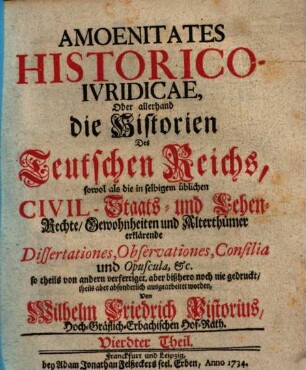 AMOENITATES
HISTORICO-
IVRIDICAE,
Oder allerhand
die Historien
Des
Teutschen Reichs,
sowol als die in selbigem üblichen
CIVIL-Staats- und Lehen-
Rechte/ Gewohnheiten und Alterthümer
erklärende
Dissertationes, Observationes, Consilia
und Opuscula, &c.
so theils von andern verfertiget, aber bißhero noch nie gedruckt/
theils aber absonderlich ausgearbeitet worden,
Von
Wilhelm Friedrich Pistorius,
Hoch-Gräflich-Erbachischen Hof-Rath.
Vierdter Theil.
Franckfurt und Leipzig,
bey Adam Jonathan Felßeckers seel. Erben, Anno 1734.